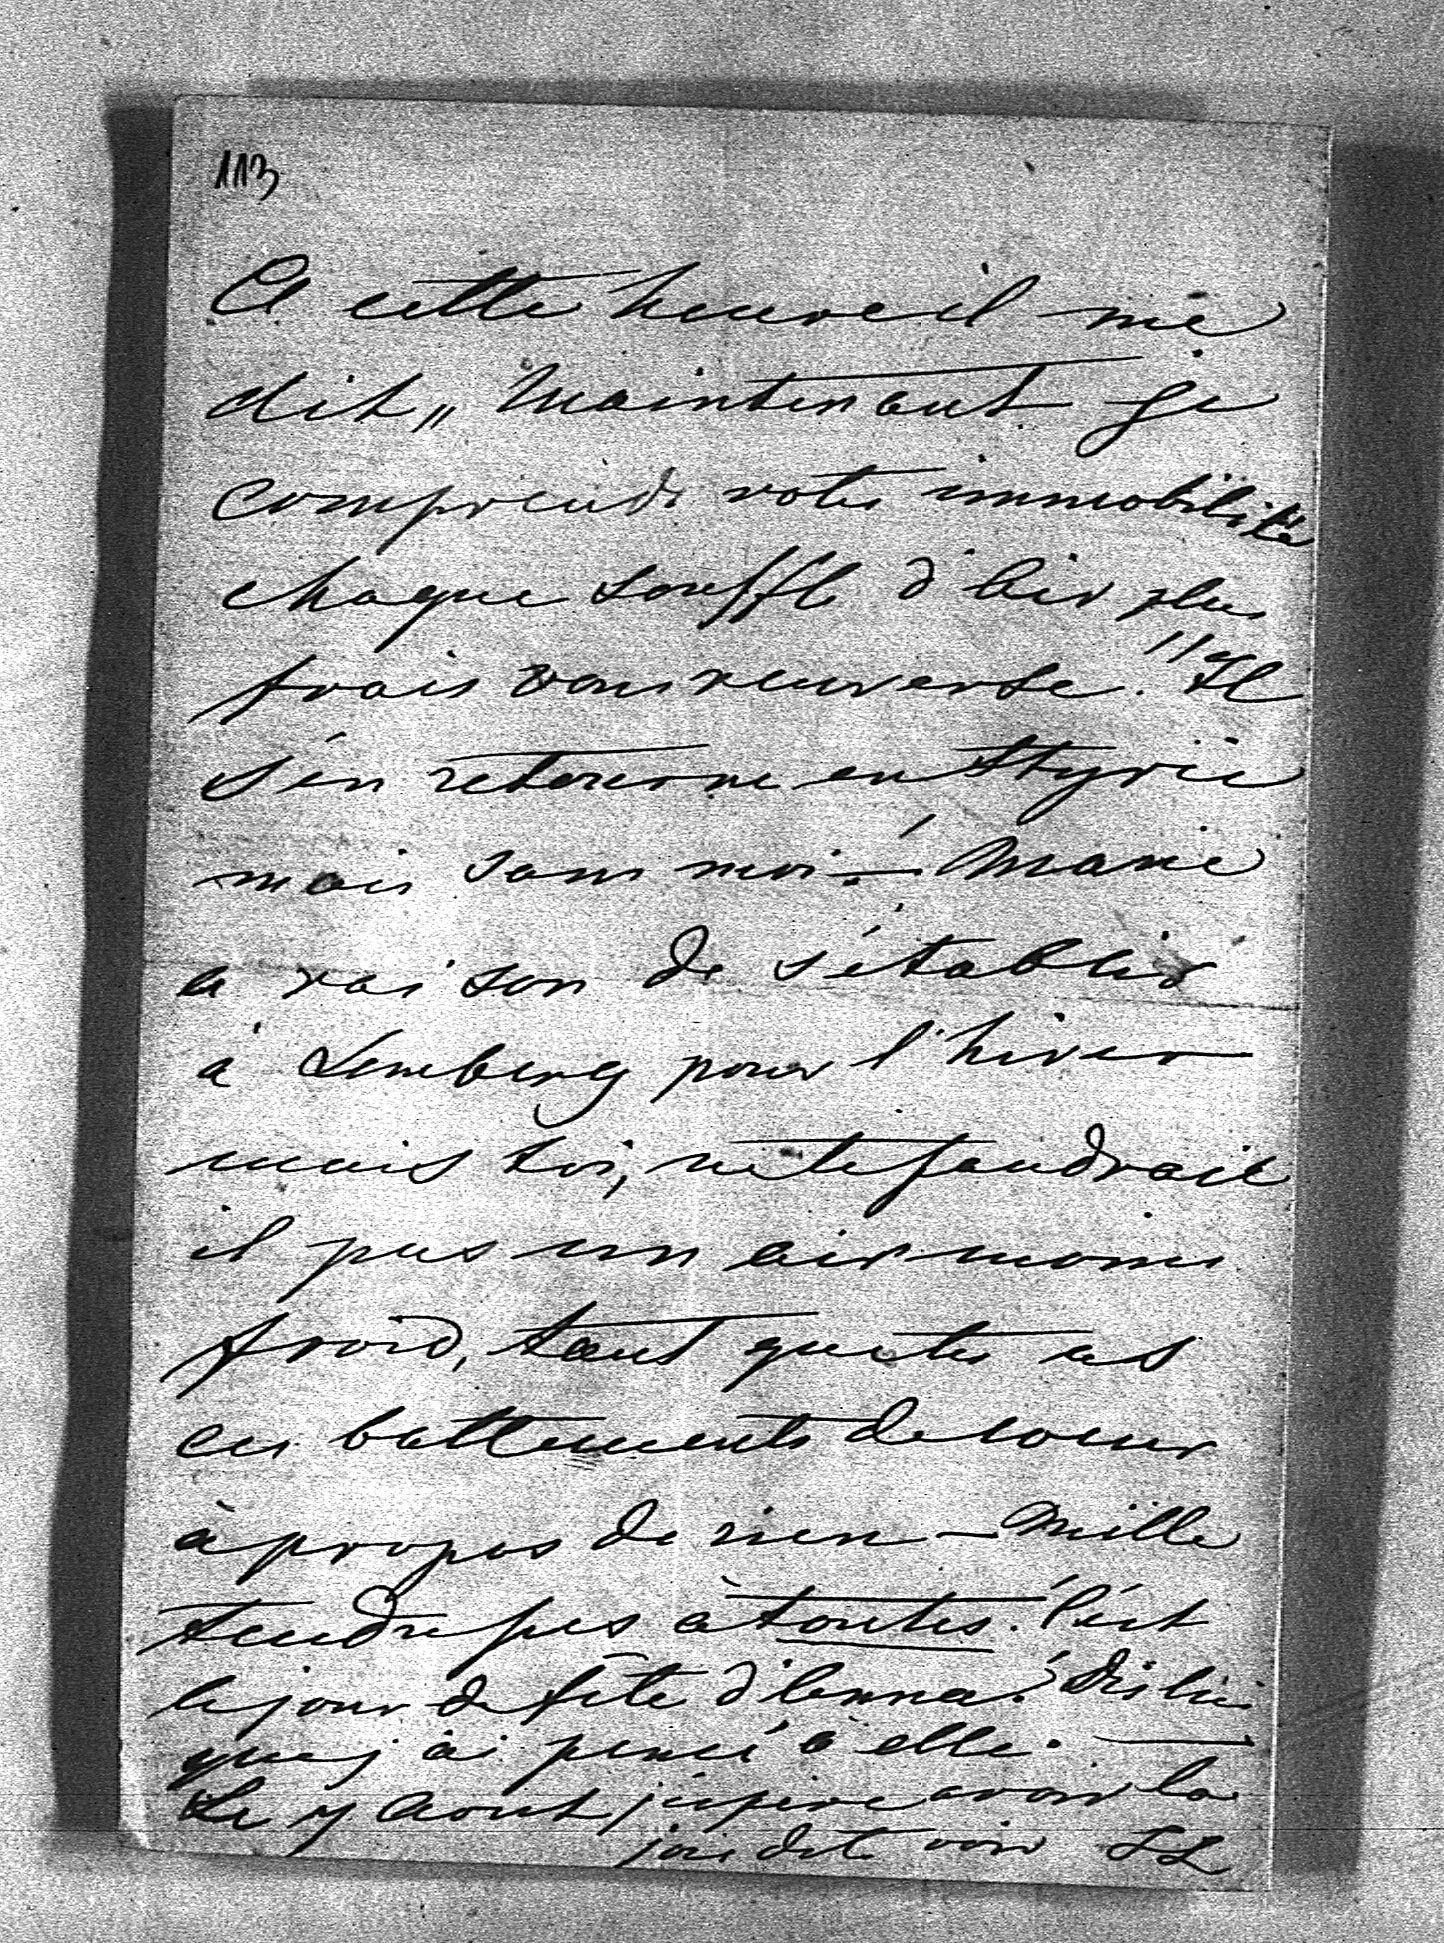 113
A cette heure il me
dit „ Maintenant je
comprends votre immobilité
chaque souffle d'air plus
frais vous renverse." Il
s'en retourne en Styrie
mais sans moi. — Marie
a raison de s'établir
à Lemberg pour l'hiver
mais toi, ne te faudrait
il pas un air moins
froid, tant que tu as
ces battements de coeur
à propos de rien — Mille
tendresses à toutes. C'est
le jour de fête d'Anna. Dis lui
que j'ai pensé à elle. —
Le 7 Aout, j'espère avoir la
joie de te voir LL